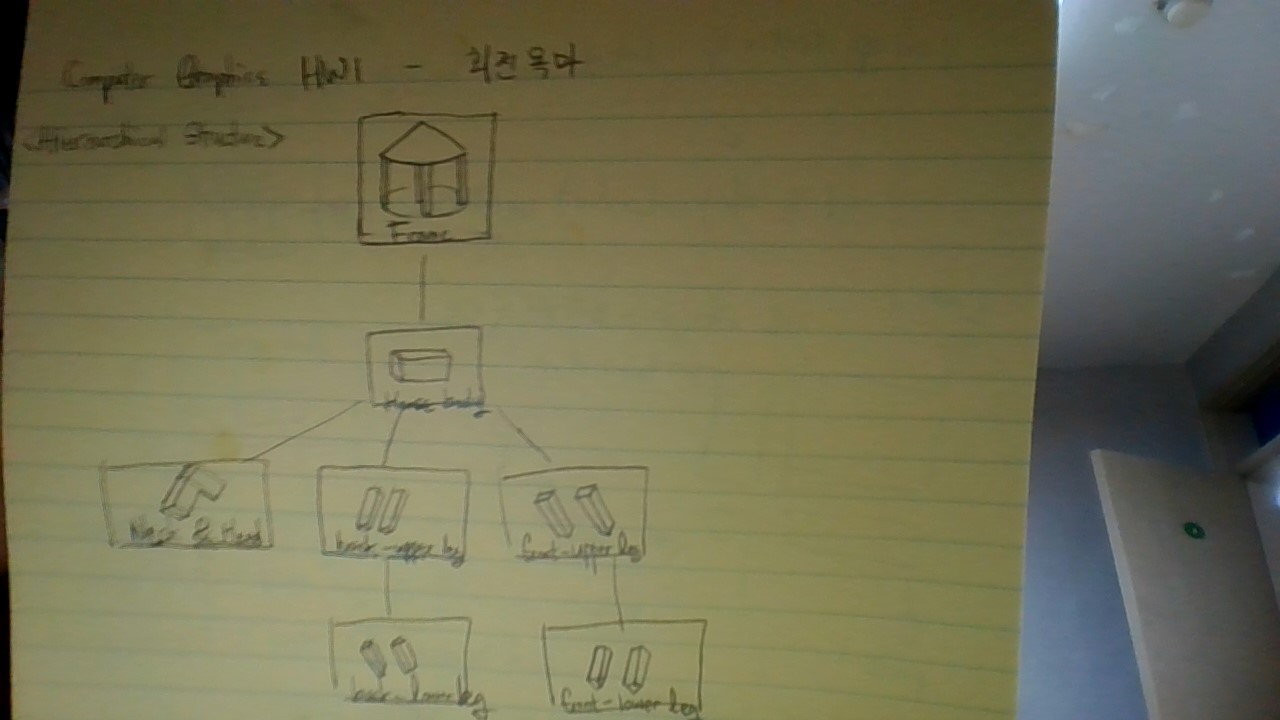 Computer Graphics HW1 - 회전목마
<Hierarchical Structure>
Frame
Horse body
Neck & Head
back-upper leg
front-upper leg
back-lower leg
front-lower leg